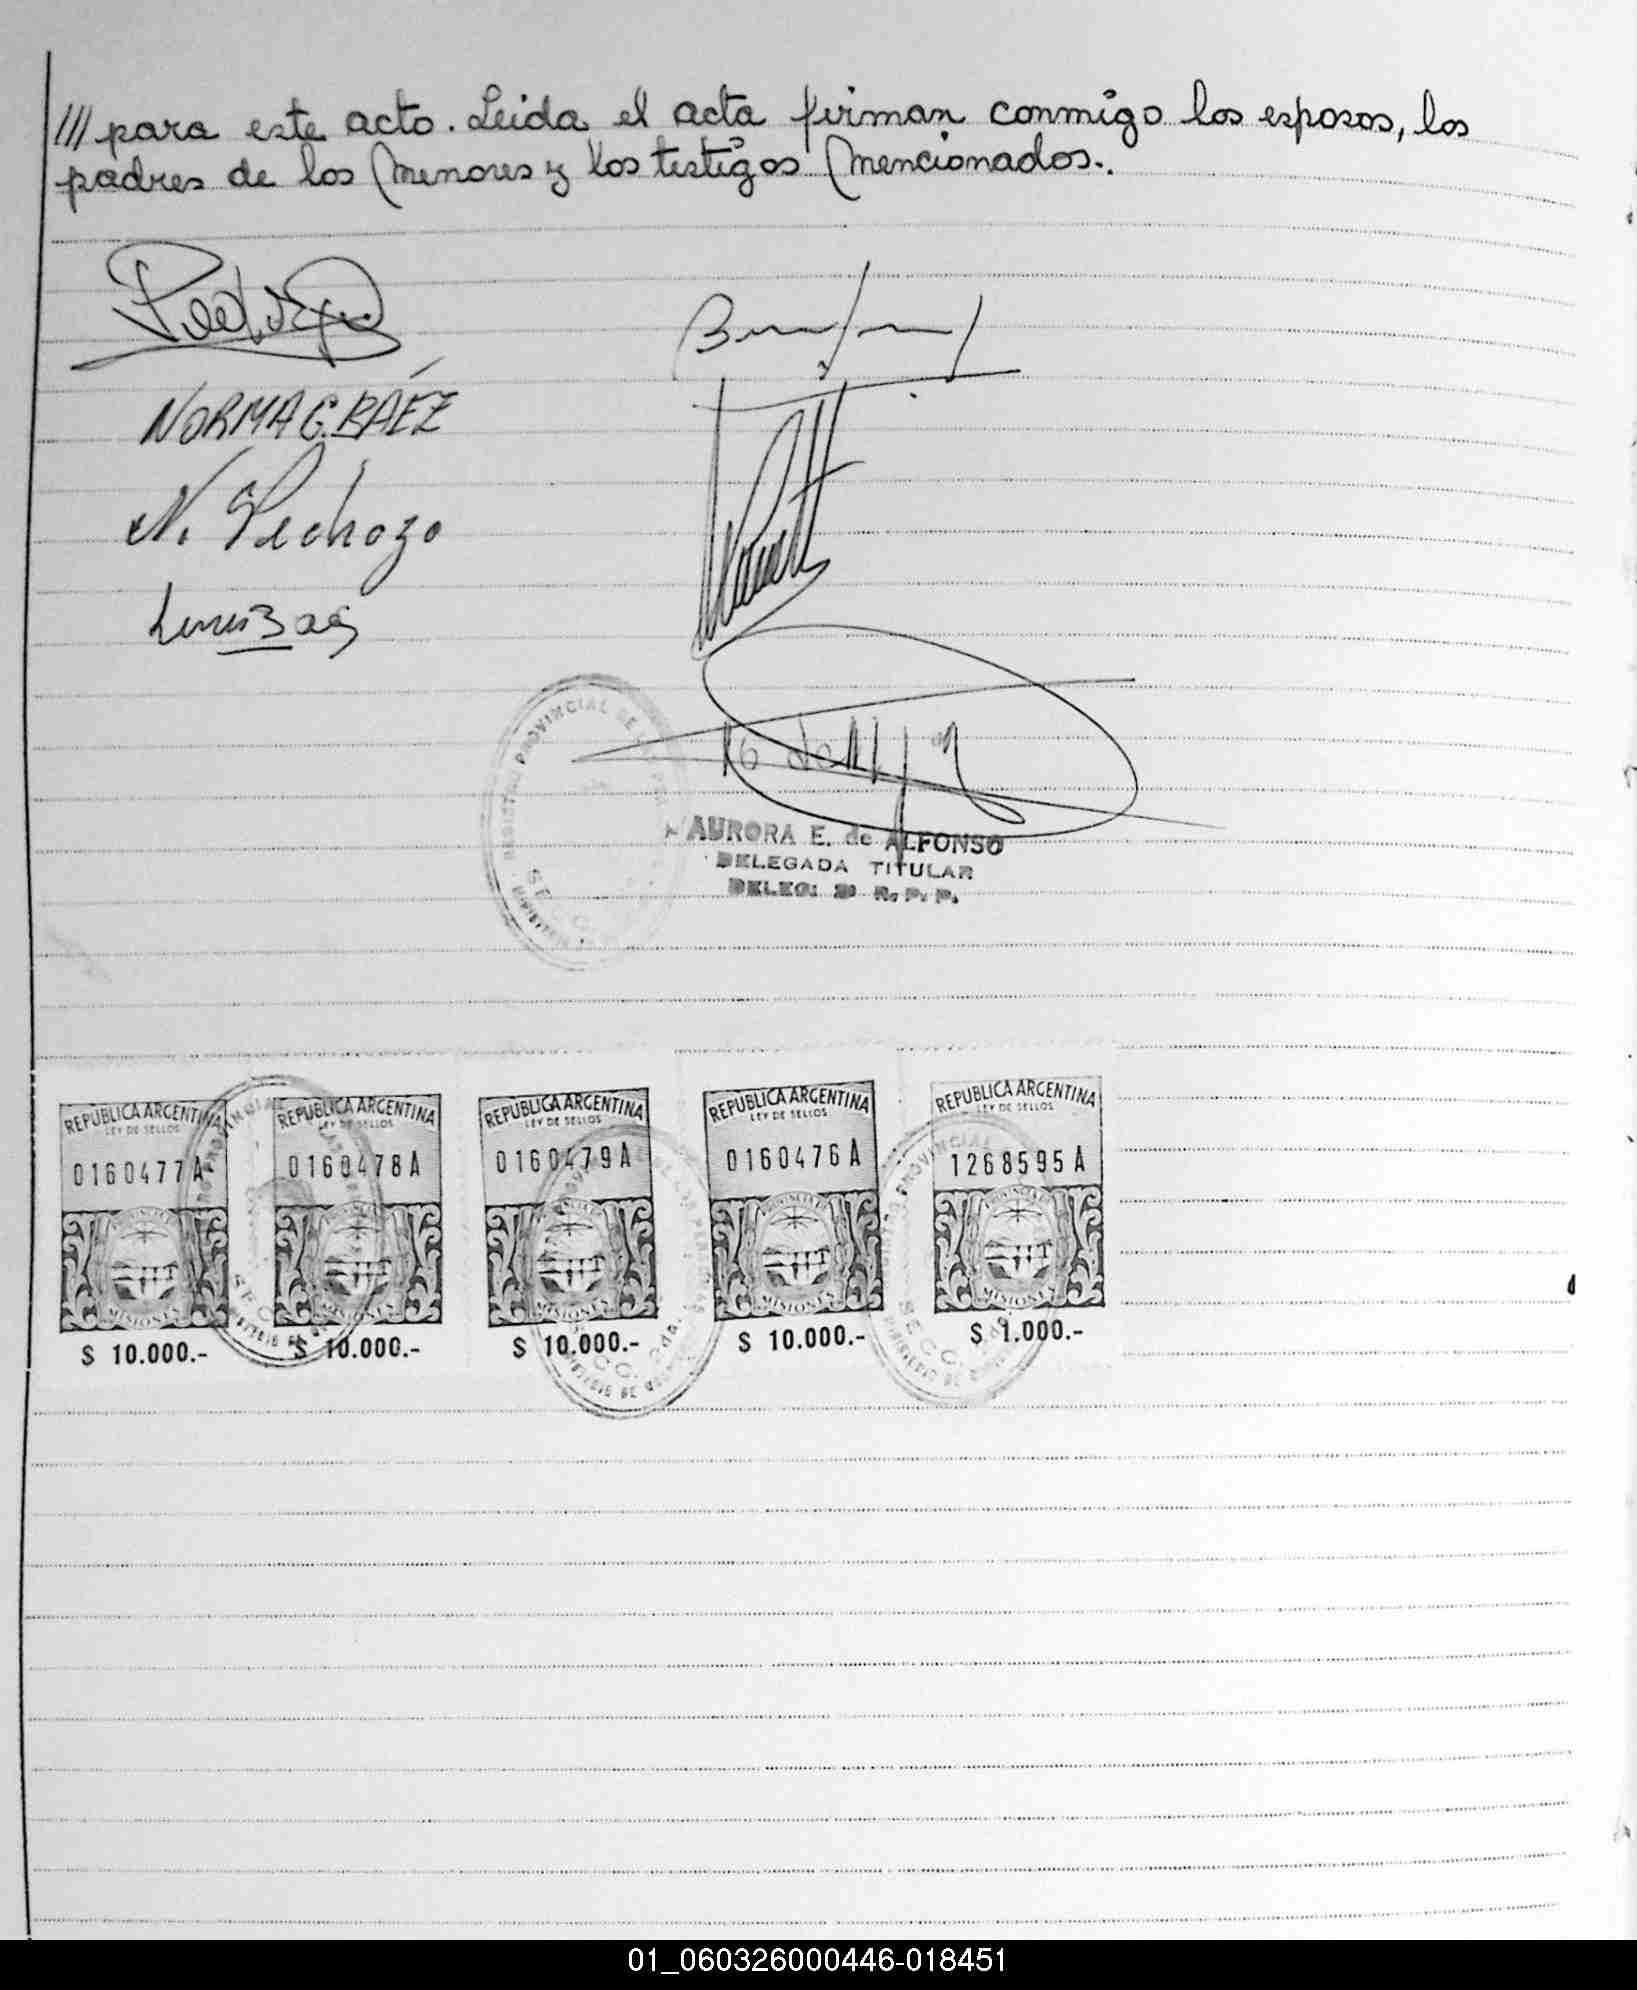 /// para este acto. Leida el acta firman conmigo los esposos, los
padres de los menores y los testigos mencionados.
NORMA G. BÁEZ
N. Pedrozo
Luis Baez
REGISTRO PROVINCIAL DE
AURORA E. de ALFONSO
DELEGADA TITULAR
DELEG: R. P. P.
REPUBLICA ARGENTINA
LEY DE SELLOS
0160477A
MISIONES
$ 10.000.-
REPUBLICA ARGENTINA
LEY DE SELLOS
0160478A
MISIONES
$ 10.000.-
REPUBLICA ARGENTINA
LEY DE SELLOS
0160479A
MISIONES
$ 10.000.-
REPUBLICA ARGENTINA
LEY DE SELLOS
0160476A
MISIONES
$ 10.000.-
REPUBLICA ARGENTINA
LEY DE SELLOS
1268595A
MISIONES
$ 1.000.-
01_060326000446-018451